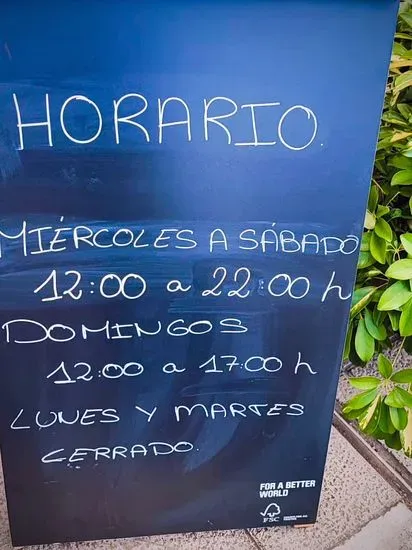 HORARIO.
MIÉRCOLES A SÁBADO
12:00 a 22:00 h
DOMINGOS
12:00 a 17:00 h
LUNES Y MARTES
CERRADO.
FOR A BETTER
WORLD
FSC